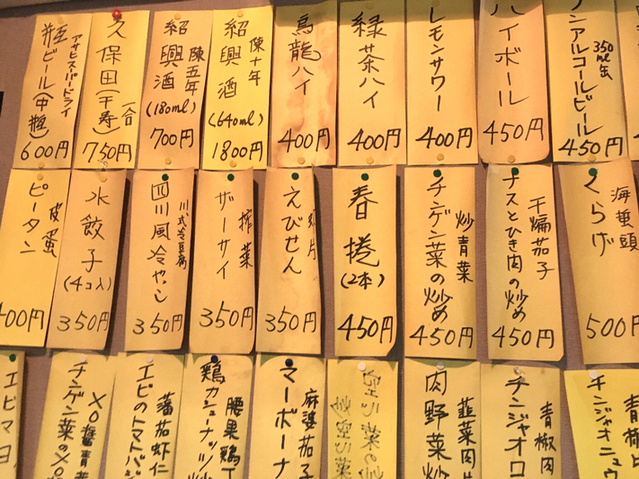 瓶ビール(中瓶)
アサヒスーパードライ
600円
久保田(千寿)
一合
750円
紹興酒
陳五年
(180ml)
700円
紹興酒
陳十年
(640ml)
1800円
烏龍ハイ
400円
緑茶ハイ
400円
レモンサワー
400円
ハイボール
450円
ノンアルコールビール
350ml缶
450円
ピータン
皮蛋
400円
水餃子
(4コ入)
350円
四川風冷やっこ
川式冷豆腐
350円
ザーサイ
搾菜
350円
えびせん
片
350円
春捲
(2本)
450円
チンゲン菜の炒め
炒青菜
450円
ナスとひき肉の炒め
干煸茄子
450円
くらげ
海蜇頭
500円
エビマヨ
チンゲン菜のXO
XO醤青菜
エビのトマト
蕃茄虾仁
鶏カシューナッツ炒
腰果鶏丁
マーボーナ
麻婆茄子
空心菜の
炒空心菜
肉野菜炒
韮菜肉片
チンジャオロ
青椒肉
チンジャオニュウ
青椒